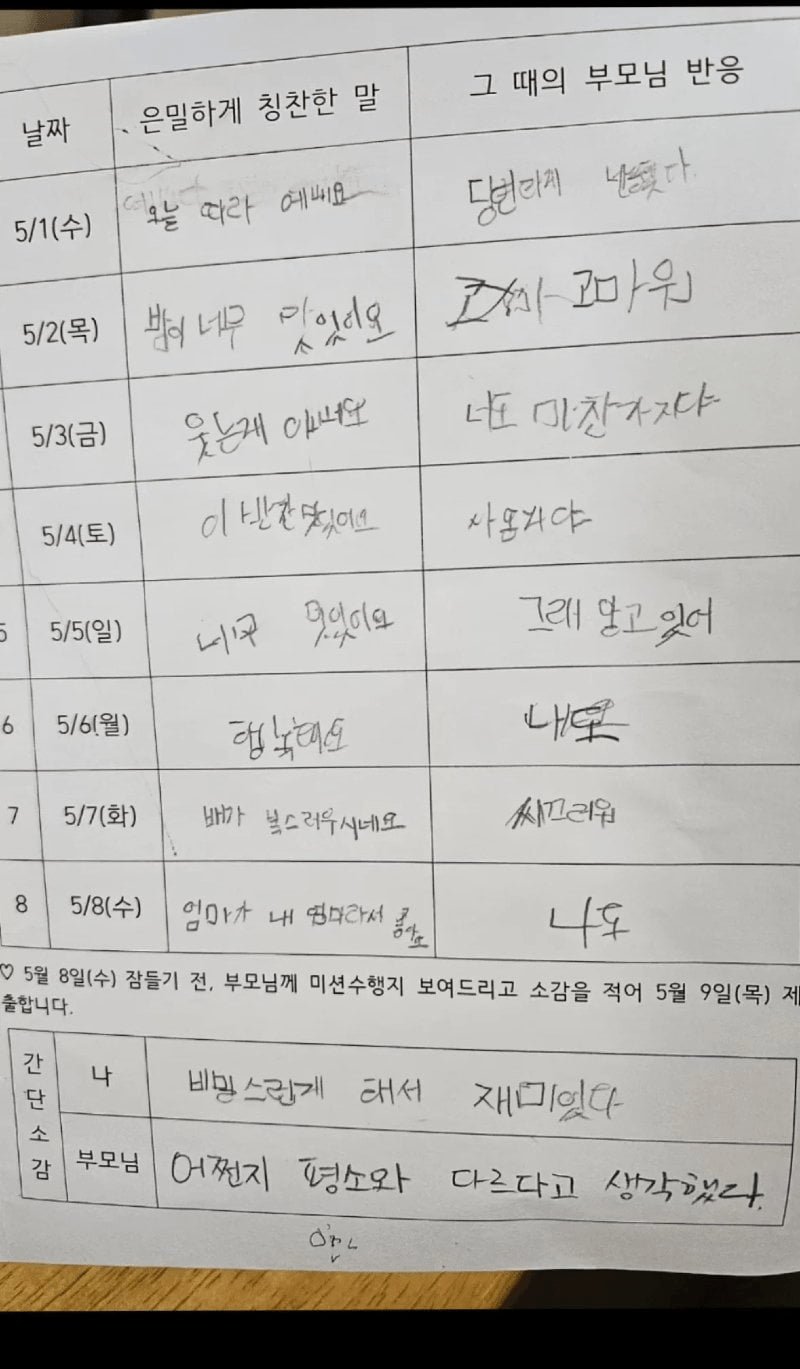 날짜 은밀하게 칭찬한 말 그 때의 부모님 반응
5/1(수) 오늘 따라 예뻐요 당연하지
5/2(목) 밥이 너무 맛있어요 고마워
5/3(금) 웃는게 너도 마찬가지야
5/4(토) 이 맛있어요
5/5(일) 너무 멋있어요 그래 알고 있어
6 5/6(월) 행복해요 나도
7 5/7(화) 배가 복스러우시네요 씨끄러워
8 5/8(수) 엄마가 내 엄마라서 좋아요 나도
♡ 5월 8일(수) 잠들기 전, 부모님께 미션수행지 보여드리고 소감을 적어 5월 9일(목) 제
출합니다.
간단소감
나 비밀스런게 해서 재미있다
부모님 어쩐지 평소와 다르다고 생각했다.